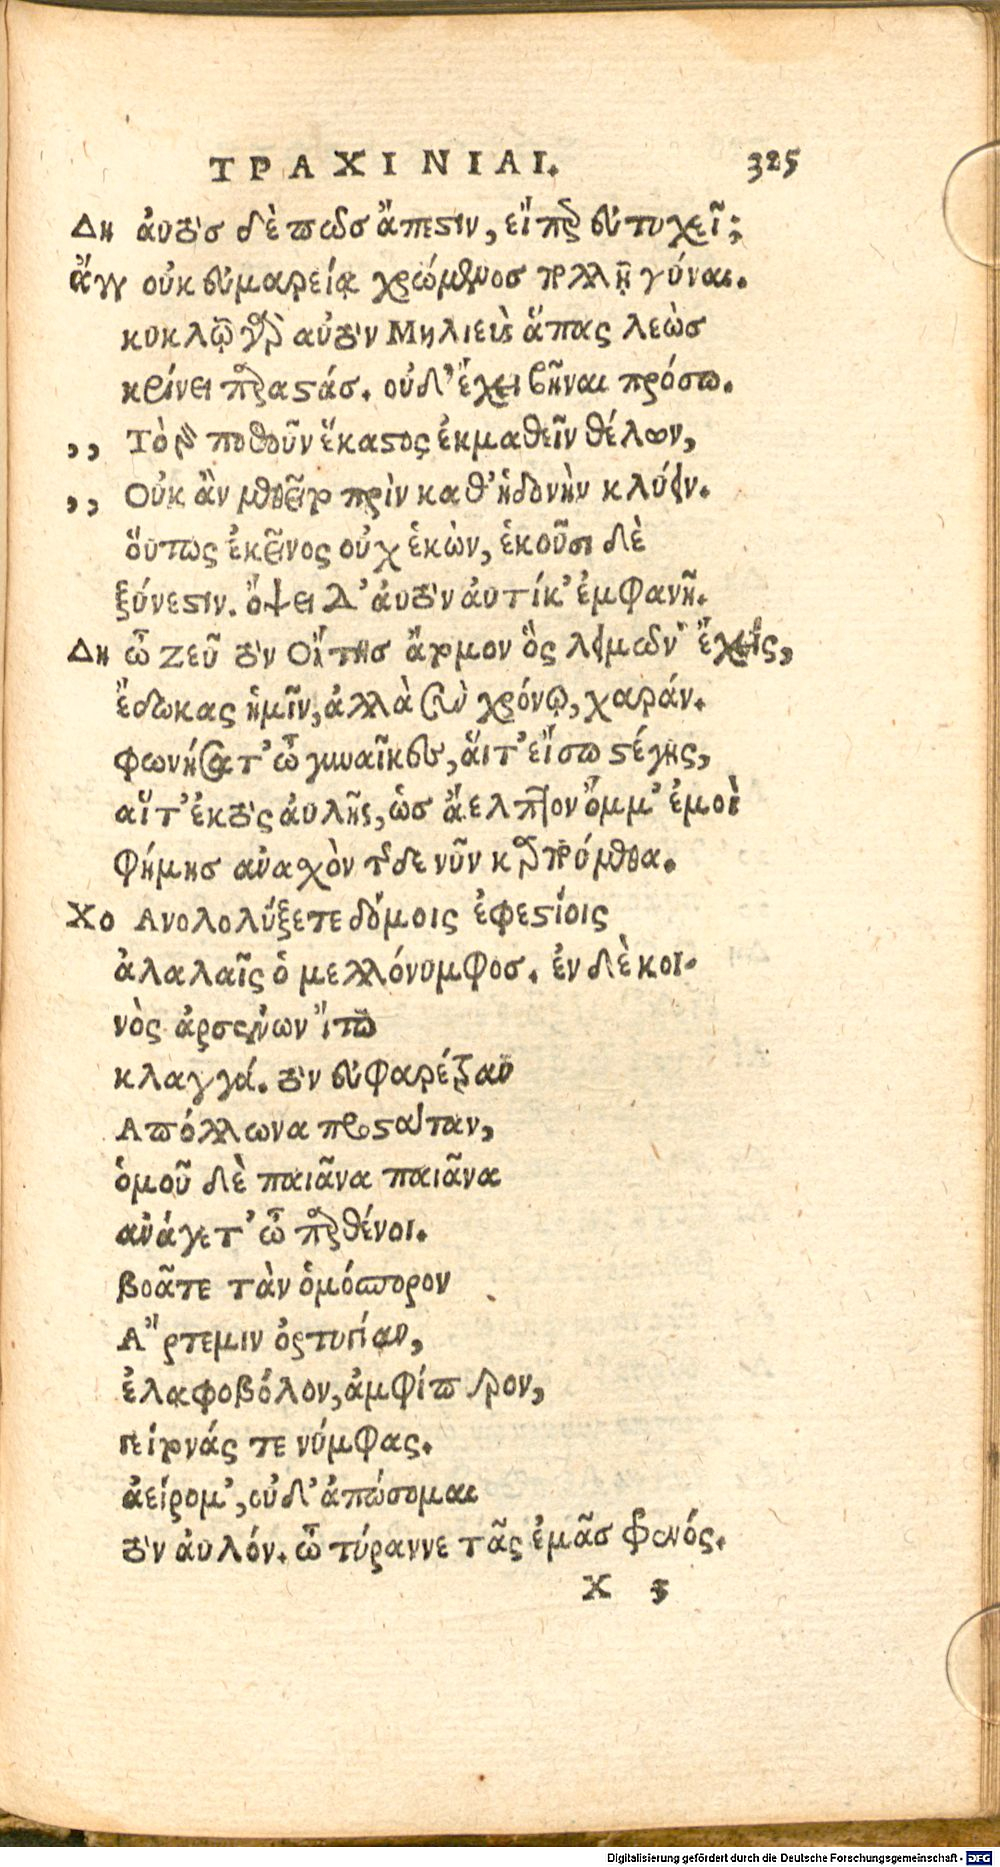 ΤΡΑΧΙΝΙΑΙ. 325
Δη ἀυτὸσ δὲ πῶσ ἄπεστιν, εἴπερ εὐτυχεῖ;
ἄγγ οὐκ εὐμαρείᾳ χρώμενοσ πολλῇ γύναι.
κυκλῷ γὰρ αὐτὸν Μηλιεὺς ἅπας λεὼσ
κρίνει παραστάσ. οὐδ' ἔχει βῆναι πρόσω.
,, Τὸ γὰρ ποθοῦν ἕκαστος ἐκμαθεῖν θέλων,
,, Οὐκ ἂν μεθεῖτο πρὶν καθ' ἡδονὴν κλύειν.
ὅυτως ἐκεῖνος οὐχ ἑκὼν, ἑκοῦσι δὲ
ξύνεστιν. ὄψει Δ' ἀυτὸν ἀυτίκ' ἐμφανῆ.
Δη ὦ Ζεῦ τὸν Οἴτησ ἄτμον ὃς λειμῶν' ἔχεις,
ἔδωκας ἡμῖν, ἀλλὰ σὺν χρόνῳ, χαράν.
φωνήσατ' ὦ γυναῖκες, ἅιτ' εἴσω στέγης,
αἵτ' ἐκτὸς ἀυλῆς, ὡσ ἄελπτον ὄμμ' ἐμοὶ
φήμησ ἀναχὸν τῆσδε νῦν καρπούμεθα.
Χο Ανολολύξετε δόμοις ἐφεστίοις
ἀλαλαῖς ὁ μελλόνυμφοσ. ἐν δὲ κοι-
νὸς ἀρσένων ἴτω
κλαγγά. τὸν εὐφαρέτραν
Απόλλωνα προστάταν,
ὁμοῦ δὲ παιᾶνα παιᾶνα
ἀνάγετ' ὦ παρθένοι.
βοᾶτε τὰν ὁμόσπορον
Ἄρτεμιν ὀρτυγίαν,
ἐλαφοβόλον, ἀμφίπυρον,
γείτονάς τε νύμφας.
ἀείρομ', οὐδ' ἀπώσομαι
τὸν ἀυλόν. ὦ τύραννε τᾶς ἐμᾶσ φρενός.
Χ 5
Digitalisierung gefördert durch die Deutsche Forschungsgemeinschaft - DFG